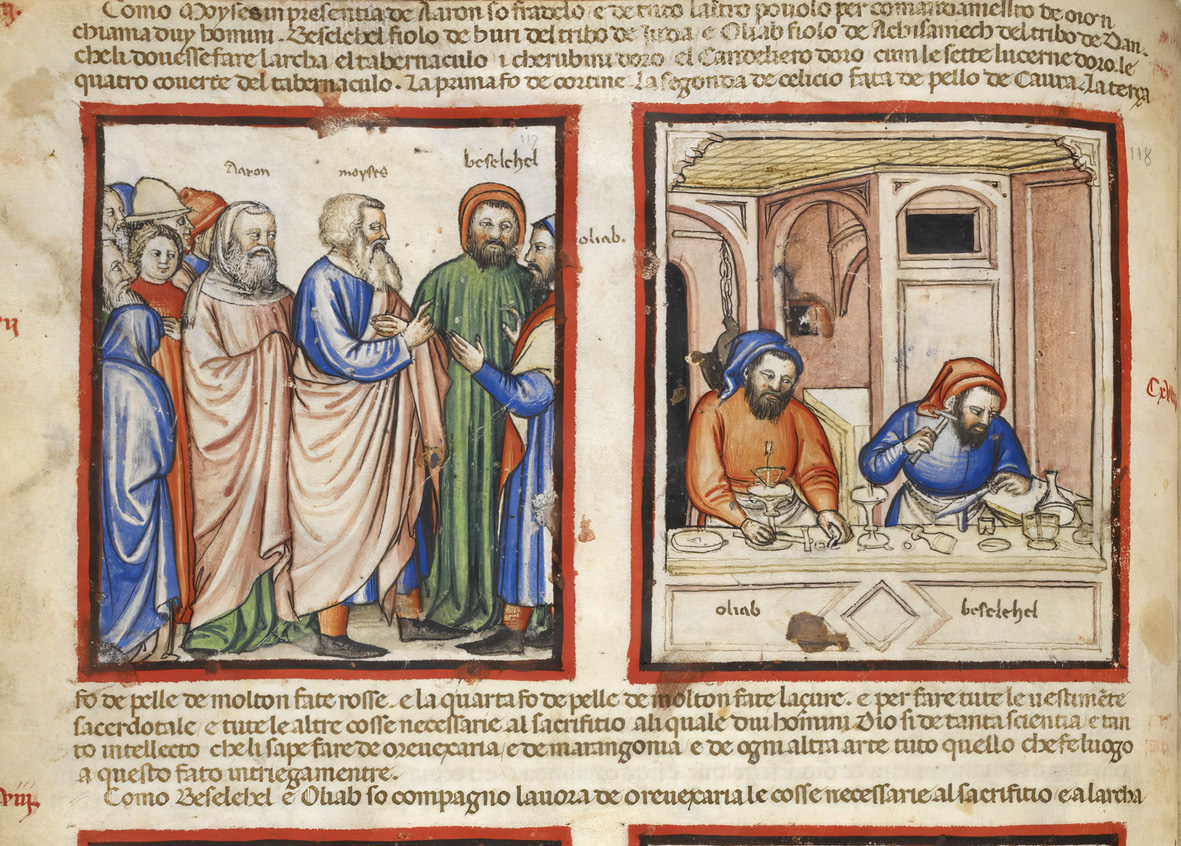 Como Moyses in presentia de Aaron so fradelo / e de tuto laltro povolo per comandamento de
chiama duy homini . Beselehel fiolo de huri del tribo de Juda e Oliab fiolo de Achisamech del tribo de Dan .
che li dovesse fare larcha el tabernaculo i cherubini doro el Candeliero doro cum le sette lucerne doro . le
quatro coverte del tabernaculo . La prima fo de cortine La segonda de celicio fata de pello de Caura . La terça
Aaron moyses beselehel
oliab .
118
oliab beselehel
fo de pelle de molton fate rosse . e la quarta fo de pelle de molton fate laçure . e per fare tute le vestimēte
sacerdotale / e tute le altre cosse necessarie al sacrifitio ali quale dui homini Dio si de tanta scientia / e tan
to intellecto che li sape fare de orevexaria / e de marangonia / e de ogni altra arte tuto quello che fe luogo
a questo fato intriegamentre .
Como Beselehel e Oliab so compagno lavora de orevexaria le cosse necessarie al sacrifitio e a larcha